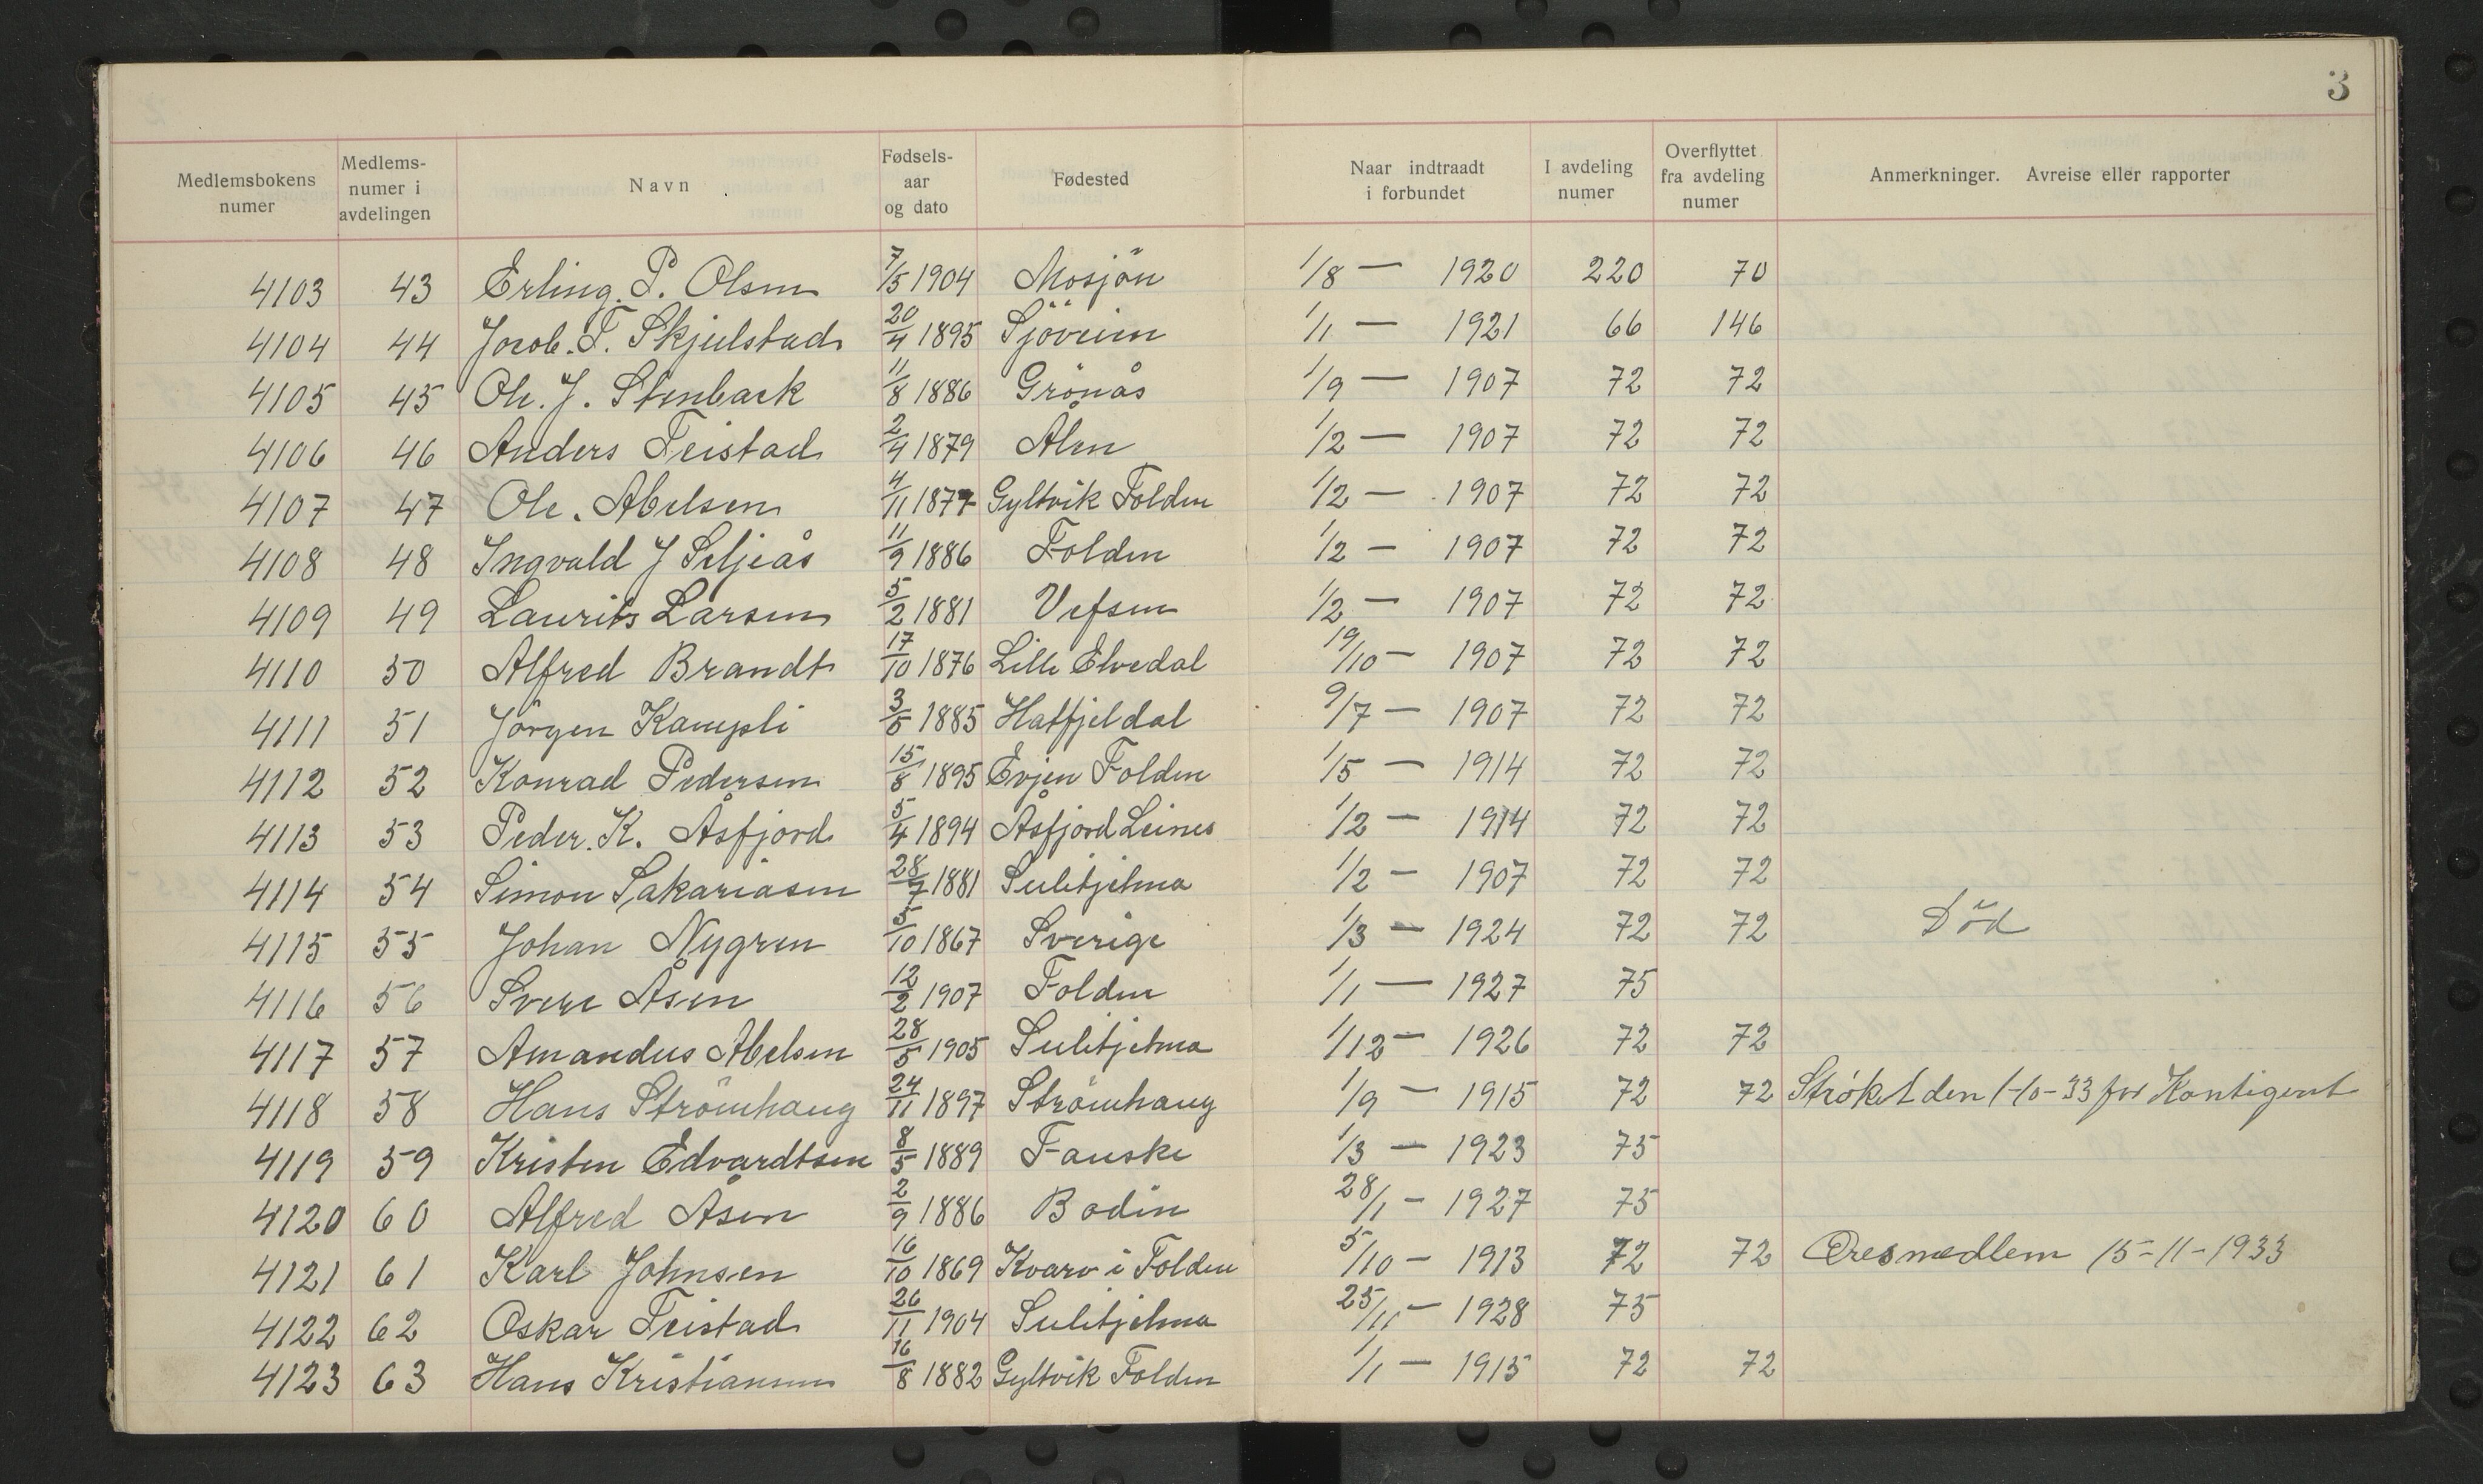 3
Medlemsbokens numer | Medlems-numer i avdelingen | Navn | Fødsels-aar og dato | Fødested | Naar indtraadt i forbundet | I avdeling numer | Overflyttet fra avdeling numer | Anmerkninger. Avreise eller rapporter
4103 43 Erling. P. Olsen 7/5 1904 Mosjön 1/8 — 1920 220 70
4104 44 Jacob. T. Skjelstad 20/4 1895 Sjöveien 1/1 — 1921 66 146
4105 45 Ole. J. Stenback 11/8 1886 Grönås 1/9 — 1907 72 72
4106 46 Anders Feistad 2/4 1879 Ålen 1/2 — 1907 72 72
4107 47 Ole. Abelsen 4/11 1877 Gyltvik Folden 1/2 — 1907 72 72
4108 48 Ingvald J Seljeås 11/9 1886 Folden 1/2 — 1907 72 72
4109 49 Laurits Larsen 5/2 1881 Vefsen 1/2 — 1907 72 72
4110 50 Alfred Brandt 17/10 1876 Lille Elvedal 19/10 — 1907 72 72
4111 51 Jörgen Kampli 3/5 1885 Hatfjeldal 9/7 — 1907 72 72
4112 52 Konrad Pedersen 15/8 1895 Evjen Folden 1/5 — 1914 72 72
4113 53 Peder. K. Åsfjord 5/4 1894 Åsfjord Leines 1/2 — 1914 72 72
4114 54 Simon Sakariasen 28/7 1881 Sulitjelma 1/2 — 1907 72 72
4115 55 Johan Nygren 5/10 1867 Sverige 1/3 — 1924 72 72 Död
4116 56 Svere Åsen 12/2 1907 Folden 1/1 — 1927 75
4117 57 Amandus Abelsen 28/5 1905 Sulitjelma 1/12 — 1926 72 72
4118 58 Hans Strömhaug 24/11 1897 Strömhaug 1/9 — 1915 72 72 Strøket den 1-10-33 for Kontigent
4119 59 Kristen Edvardtsen 8/5 1889 Fauske 1/3 — 1923 75
4120 60 Alfred Åsen 2/9 1886 Bodin 28/1 — 1927 75
4121 61 Karl Johnsen 16/10 1869 Kvarv i Folden 5/10 — 1913 72 72 Æresmedlem 15-11-1933
4122 62 Oskar Feistad 26/11 1904 Sulitjelma 25/11 — 1928 75
4123 63 Hans Kristiansen 16/8 1882 Gyltvik Folden 1/1 — 1915 72 72